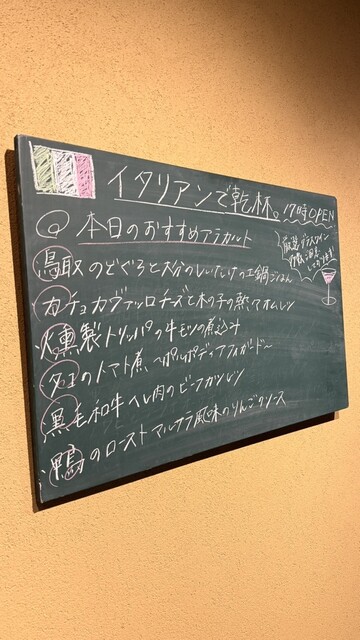 イタリアンで乾杯。17時OPEN
本日のおすすめアラカルト
厳選グラスワイン
多数ご用意
しております!
鳥取のどぐろと大分のしいたけの土鍋ごはん
カチョカヴァッロチーズと木の子の窯オムレツ
燻製トリッパの牛モツの煮込み
タコのトマト煮 〜ポルポ アフォガード〜
黒毛和牛ヘレ肉のビーフカツレツ
鴨のロースト マルサラ風味のりんごのソース